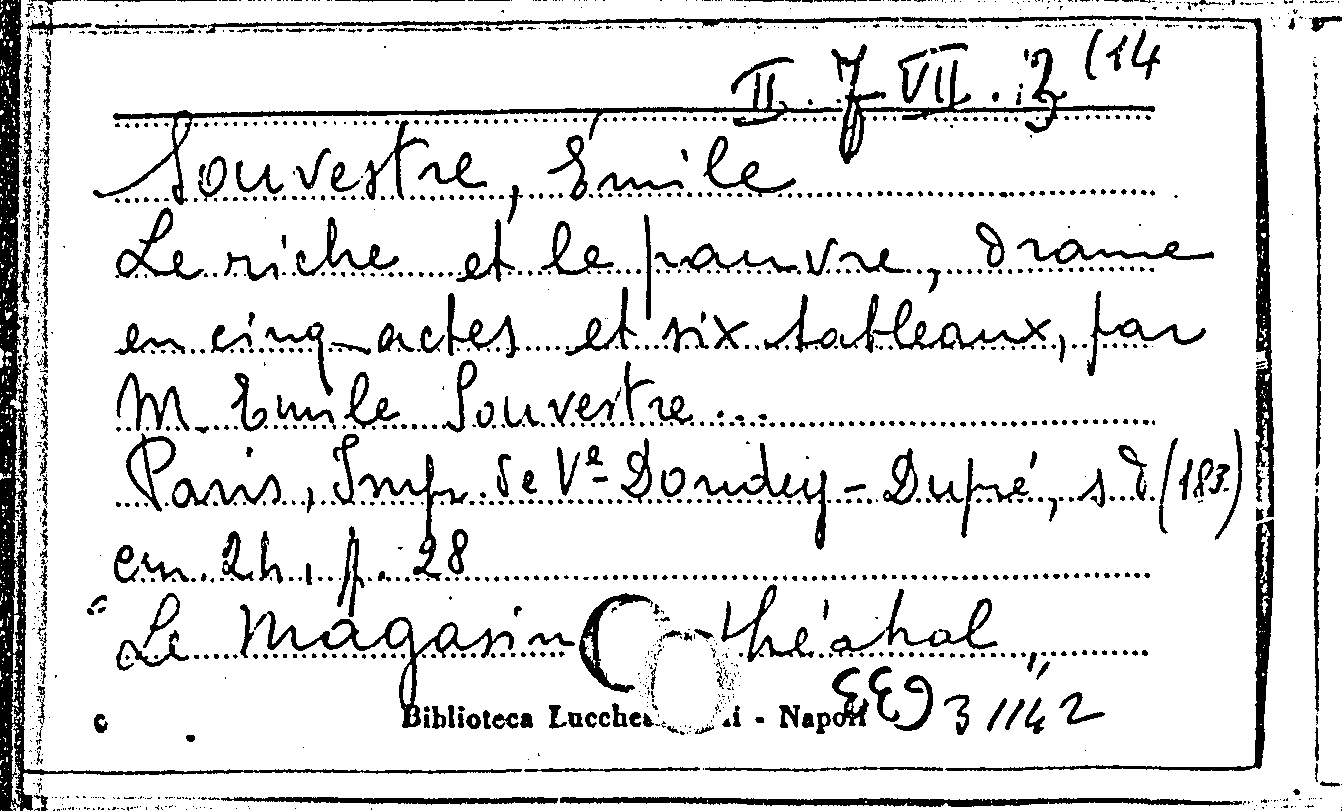 II. 7 VII. 3 (14
Souvestre, Émile
Le riche et le pauvre, drame
en cinq actes et six tableaux, par
M. Emile Souvestre...
Paris, Imp. de Ve Dondey-Dupré, s d (183.)
cm. 24, p. 28
"Le Magasin théatral"
Biblioteca Lucchesi - Napoli
31142